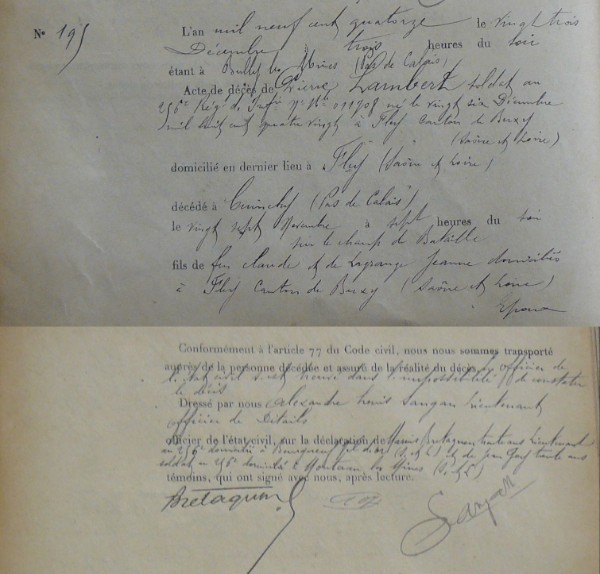 N° 195
L'an mil neuf cent quatorze le vingt trois
Décembre à trois heures du soir
étant à les Mines (Pas de Calais)
Acte de décès de Pierre Lambert soldat au
256e Rég. d'Infrie né le vingt six Décembre
mil huit cent quatre vingt à Fley Canton de Buxy
(Saône et Loire)
domicilié en dernier lieu à Fley (Saône et Loire)
décédé à Cuinchy (Pas de Calais)
le vingt sept Novembre à sept heures du soir
sur le champ de Bataille
fils de feu Claude et de Lagrange Jeanne domiciliés
à Fley Canton de Buxy (Saône et Loire)
Conformément à l'article 77 du Code civil, nous nous sommes transporté
auprès de la personne décédée et assuré de la réalité du décès. officier de
l'état civil s'est trouvé dans l'impossibilité de constater
le décès
Dressé par nous Alexandre Louis Sangan lieutenant
officier de Détails
officier de l'état civil, sur la déclaration de Bretagnon trente ans lieutenant
au 256e domicilié à et de Jean trente ans
soldat au 256e domicilié à Montceau les Mines (S. & L.)
témoins, qui ont signé avec nous, après lecture.
Bretagnon
Sangan